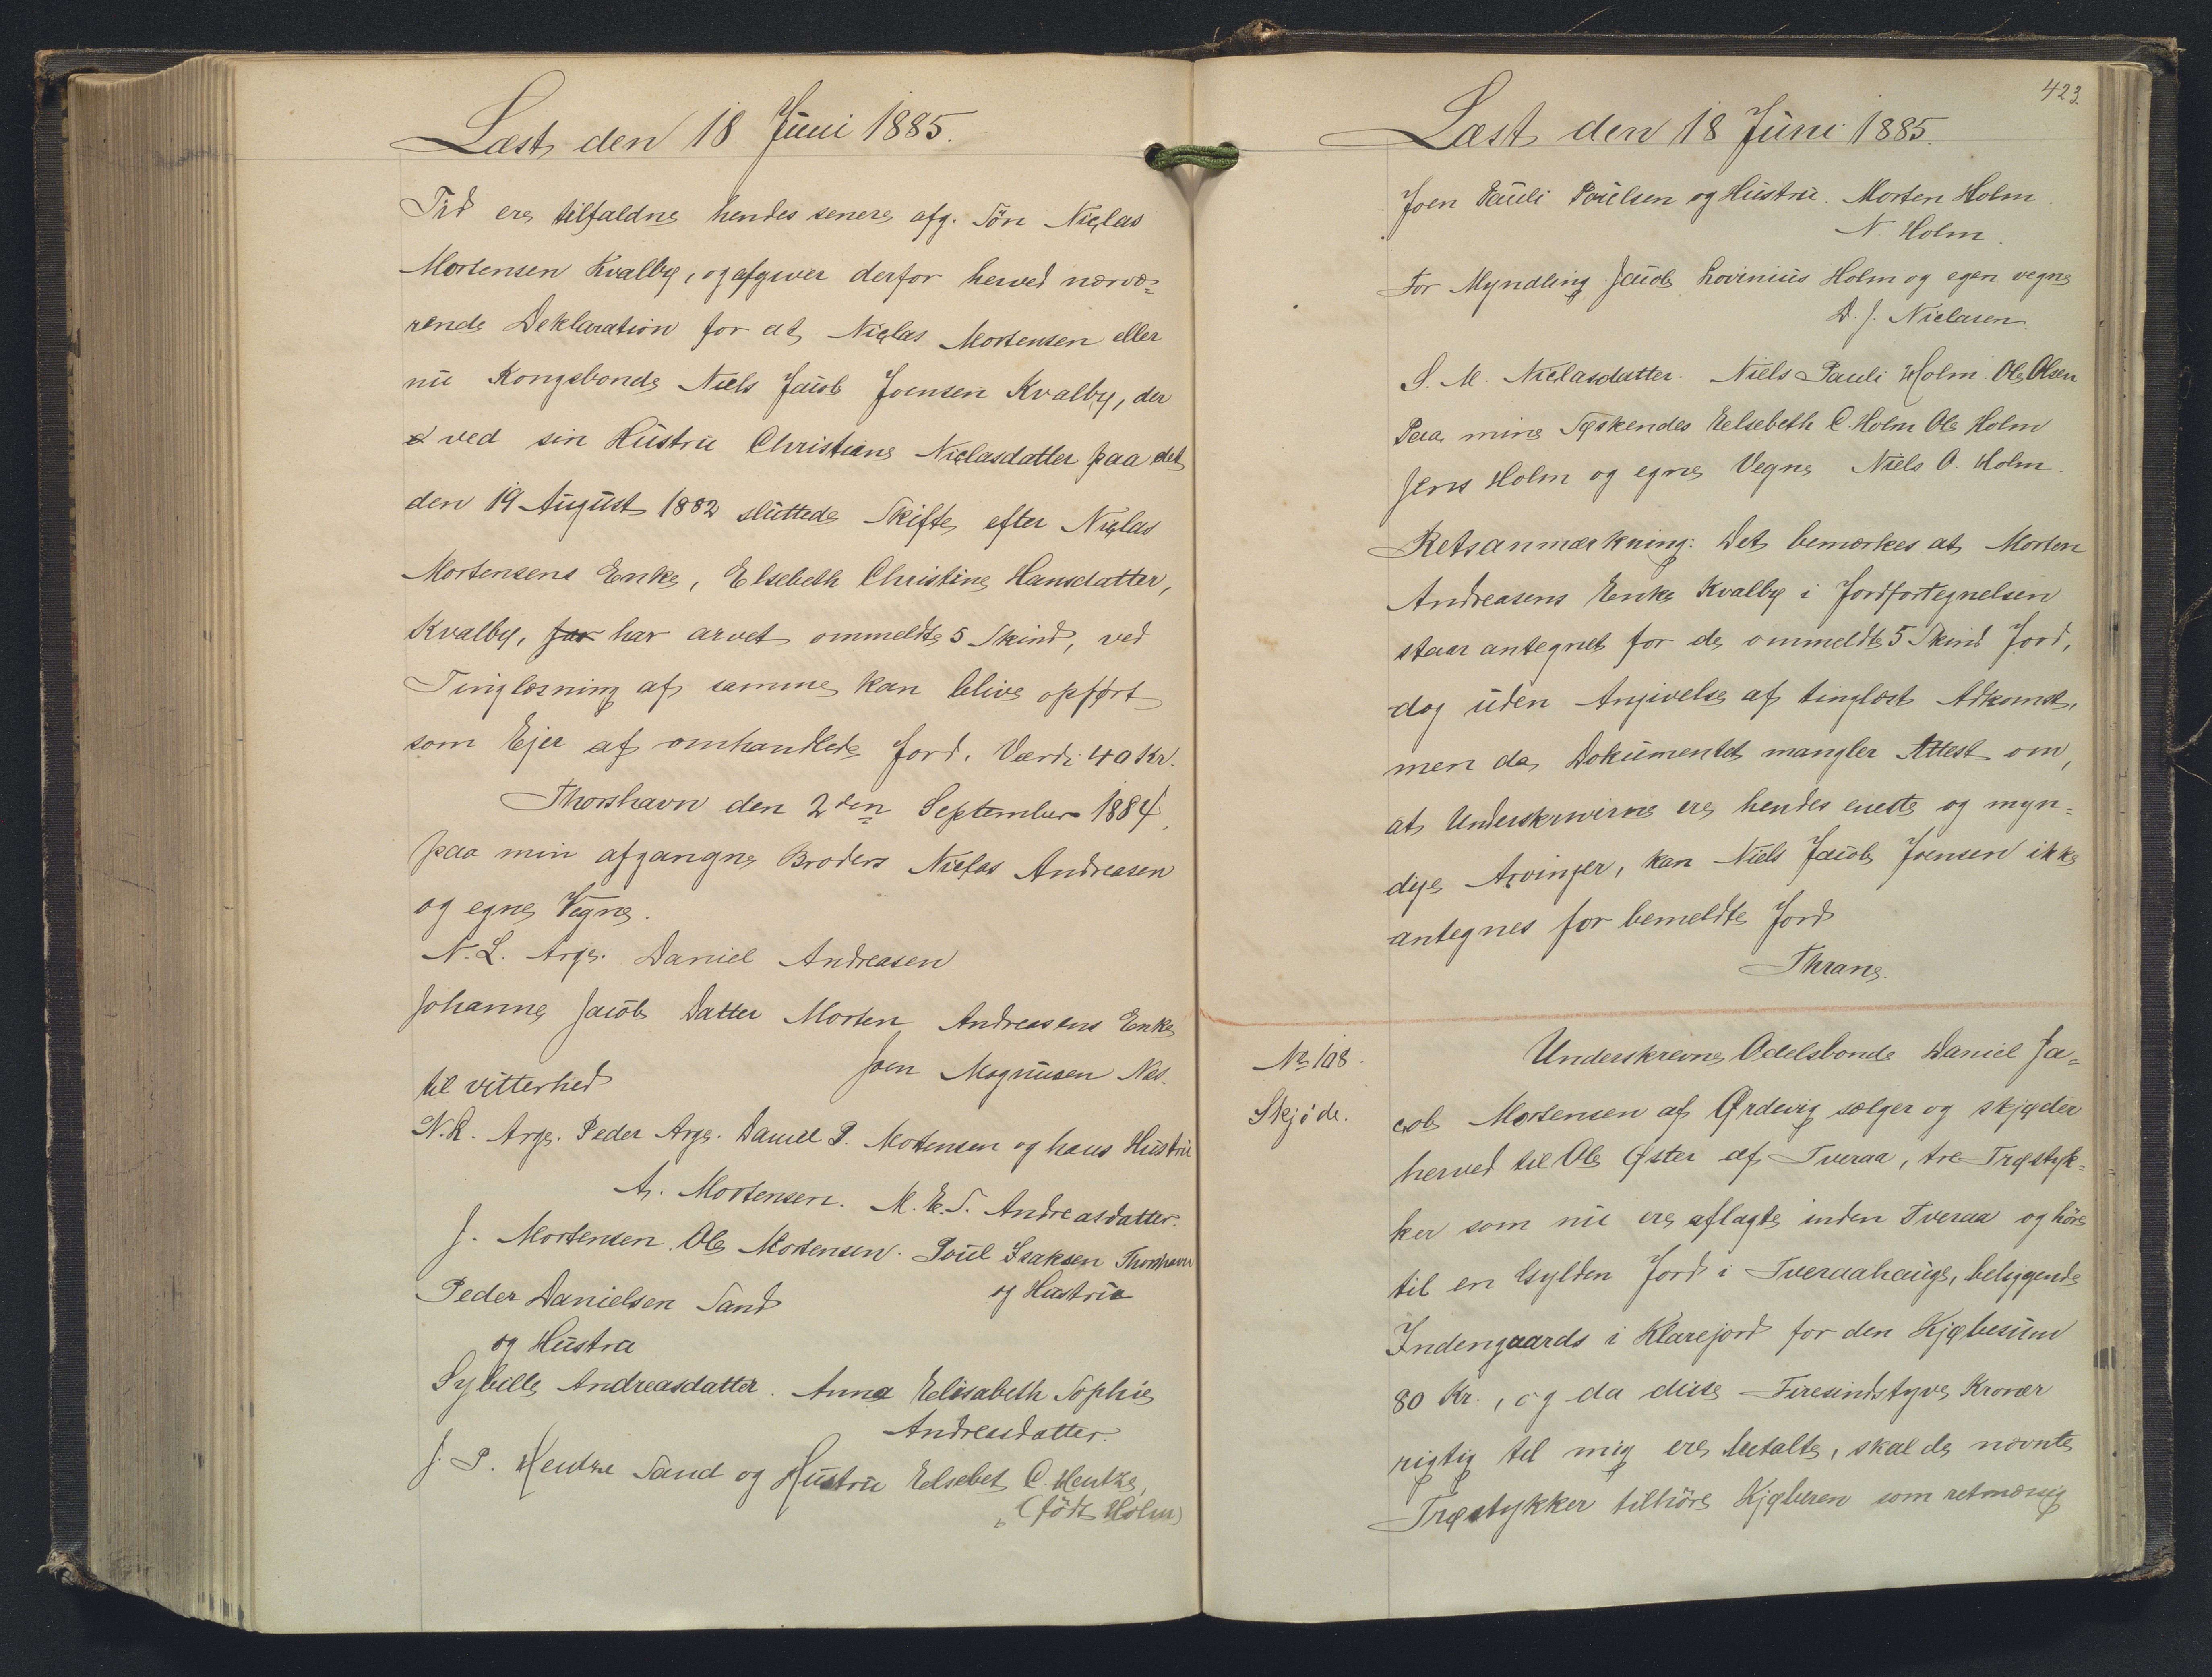 Læst den 18 Juni 1885.
Tid ere tilfaldne hendes senere afg. Sön Niclas
Mortensen Kvalbø, og afgiver derfor herved nærvæ=
rende Deklaration for at Niclas Mortensen eller
nu Kongsbonde Niels Jacob Joensen Kvalbø, der
ved sin Hustru Christiane Niclasdatter paa det
den 19 August 1882 sluttede Skifte efter Niclas
Mortensens Enke, Elsebeth Christine Hansdatter,
Kvalbø, har arvet ommeldte 5 Skind, ved
Tinglæsning af samme kan blive opført
som Ejer af omhandlede Jord. Værdi 40 Kr.
Thorshavn den 2den September 1884.
paa min afgangne Broders Niclas Andreasen
og egne Vegne.
N. L. Arge. Daniel Andreasen
Johanne Jacobs Datter Morten Andreasens Enke
til vitterhed Joen Magnusen Næs.
N. R. Arge. Peder Arge. Daniel P. Mortensen og hans Hustru
A. Mortensen. M. E. S. Andreasdatter.
J. Mortensen. Ole Mortensen. Poul Isaksen Thorshavn
Peder Danielsen Sand og Hustru
og Hustru
Sybille Andreasdatter. Anna Elisabeth Sophie
Andreasdatter.
J. P. Hentze Sand og Hustru Elsebet C. Hentze,
(födt Holm)
423
Læst den 18 Juni 1885.
Joen Pauli Poulsen og Hustru. Morten Holm.
N. Holm.
For Myndling Jacob Lovinius Holm og egen vegne
D. J. Niclasen.
S. M. Niclasdatter. Niels Pauli Holm. Ole Olsen
Paa mine Søskendes Elsebeth C. Holm Ole Holm
Jens Holm og egne Vegne Niels O. Holm.
Retsanmærkning: Det bemærkes at Morten
Andreasens Enke Kvalbø i Jordfortegnelsen
staar antegnet for de ommeldte 5 Skind Jord,
dog uden Angivelse af tinglæst Adkomst,
men da Dokumentet mangler Attest om,
at Underskriverne ere hendes eneste og myn=
dige Arvinger, kan Niels Jacob Joensen ikke
antegnes for bemeldte Jord
Thrane.
No 108.
Skjøde.
Underskrevne Odelsbonde Daniel Ja=
cob Mortensen af Ørdevig sælger og skjøder
herved til Ole Øster af Tveraa, tre Træstyk=
ker som nu ere aflagte inden Tveraa og höre
til en Gylden Jord i Tveraahauge, beliggende
Indengaards i Klarejord for den Kjøbesum
80 Kr., og da disse Firesindstyve Kroner
rigtig til mig ere betalte, skal de nævnte
Træstykker tilhöre Kjøberen som retmæssig